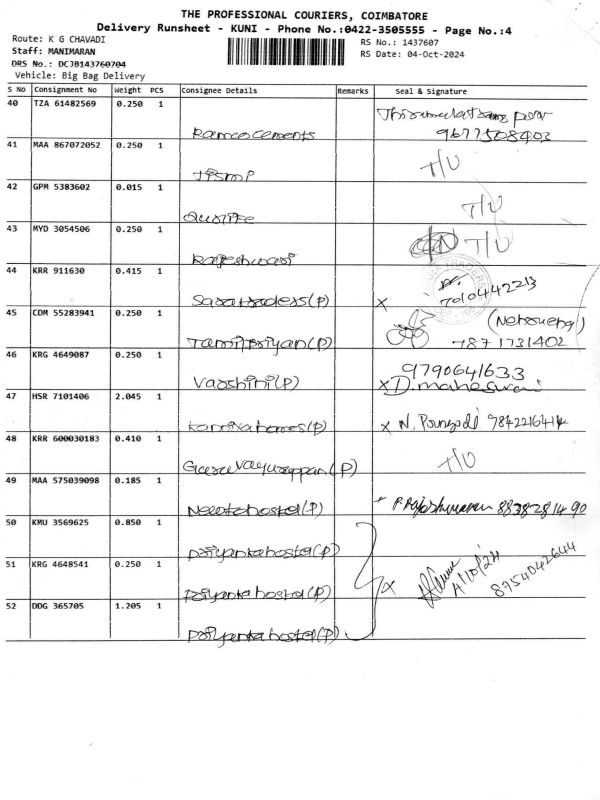 THE PROFESSIONAL COURIERS, COIMBATORE
Delivery Runsheet - KUNI - Phone No.:0422-3505555 - Page No.:4
Route: K G CHAVADI RS No.: 1437607
Staff: MANIMARAN RS Date: 04-Oct-2024
DRS No.: DCJB143760704
Vehicle: Big Bag Delivery
S No Consignment No Weight PCS Consignee Details Remarks Seal & Signature
40 TZA 61482569 0.250 1
Ramco cements 9677508403
41 MAA 867072052 0.250 1 T/U
42 GPM 5383602 0.015 1 T/U
43 MYD 3054506 0.250 1 T/U
Rajeshwari
44 KRR 911630 0.415 1
(P) x 7010442213
45 CDM 55283941 0.250 1
Tamilpriyan(P) 7871731402
46 KRG 4649087 0.250 1 9790641633
Varshini(P) x D. maheswari
47 HSR 7101406 2.045 1
homes(P) x N. 9842216414
48 KRR 600030183 0.410 1 T/U
(P)
49 MAA 575039098 0.185 1
hostel(P) 8838281490
50 KMU 3569625 0.850 1
Priyanka hostel(P)
51 KRG 4648541 0.250 1 x 4/10/24 8754042644
Priyanka hostel(P)
52 DDG 365705 1.205 1
Priyanka hostel(P)